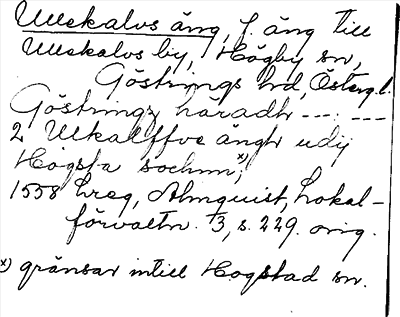 Ullekalvs äng, f. äng till
Ullekalvs by, Högby sn,
Göstrings hd, Österg.l.
Göstrings häradh --- ---
2 Ulkalffve ängh udij
Högsta sochnn,x)
1558 hreg, Almquist, Lokal-
förvaltn. 1/3, s. 229. orig.
x) gränsar intill Hogstad sn.